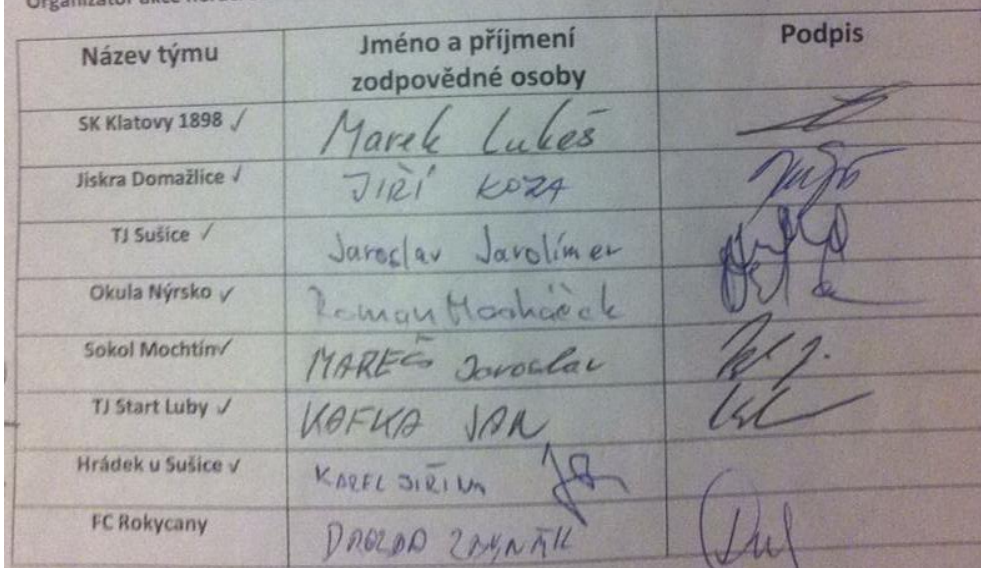 Název týmu
Jméno a příjmení
zodpovědné osoby
Podpis
SK Klatovy 1898 ✓
Marek Lukeš
Jiskra Domažlice ✓
JIŘÍ KOZA
TJ Sušice ✓
Jaroslav Jarolímer
Okula Nýrsko ✓
Roman
Sokol Mochtín ✓
MAREŠ Jaroslav
TJ Start Luby ✓
KAFKA JAN
Hrádek u Sušice ✓
KAREL
FC Rokycany